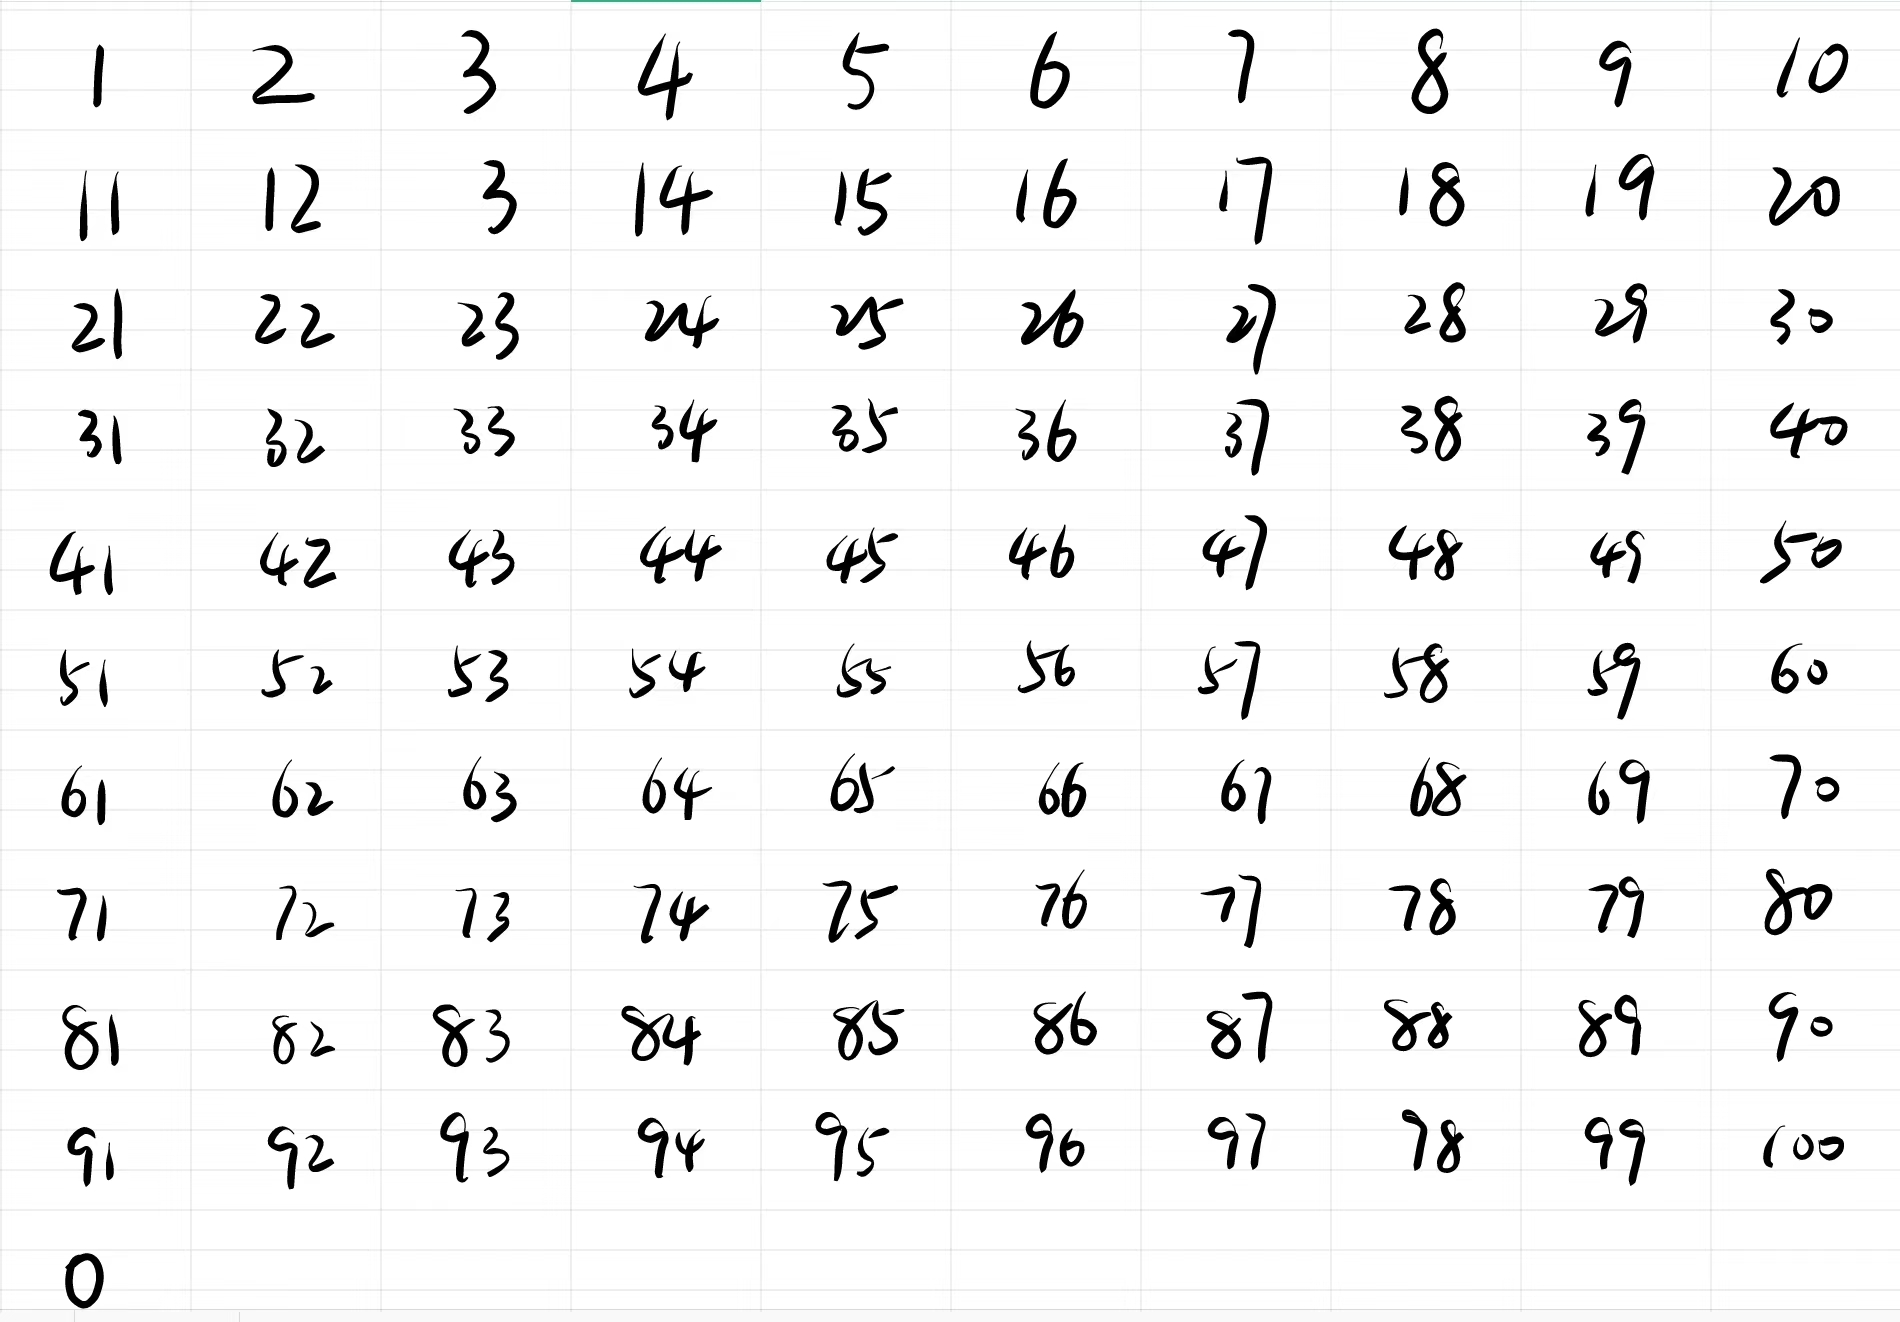 1 2 3 4 5 6 7 8 9 10
11 12 3 14 15 16 17 18 19 20
21 22 23 24 25 26 27 28 29 30
31 32 33 34 35 36 37 38 39 40
41 42 43 44 45 46 47 48 49 50
51 52 53 54 55 56 57 58 59 60
61 62 63 64 65 66 67 68 69 70
71 72 73 74 75 76 77 78 79 80
81 82 83 84 85 86 87 88 89 90
91 92 93 94 95 96 97 98 99 100
0